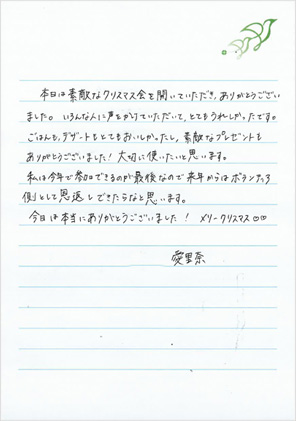 本日は素敵なクリスマス会を開いていただき、ありがとうござい
ました。いろんな人に声をかけていただいて、とてもうれしかったです。
ごはんも、デザートもとてもおいしかったし、素敵なプレゼントも
ありがとうございました！大切に使いたいと思います。
私は今年で参加できるのが最後なので来年からはボランティア
側として恩返しできたらなと思います。
今日は本当にありがとうございました！メリークリスマス♡♡
愛里奈